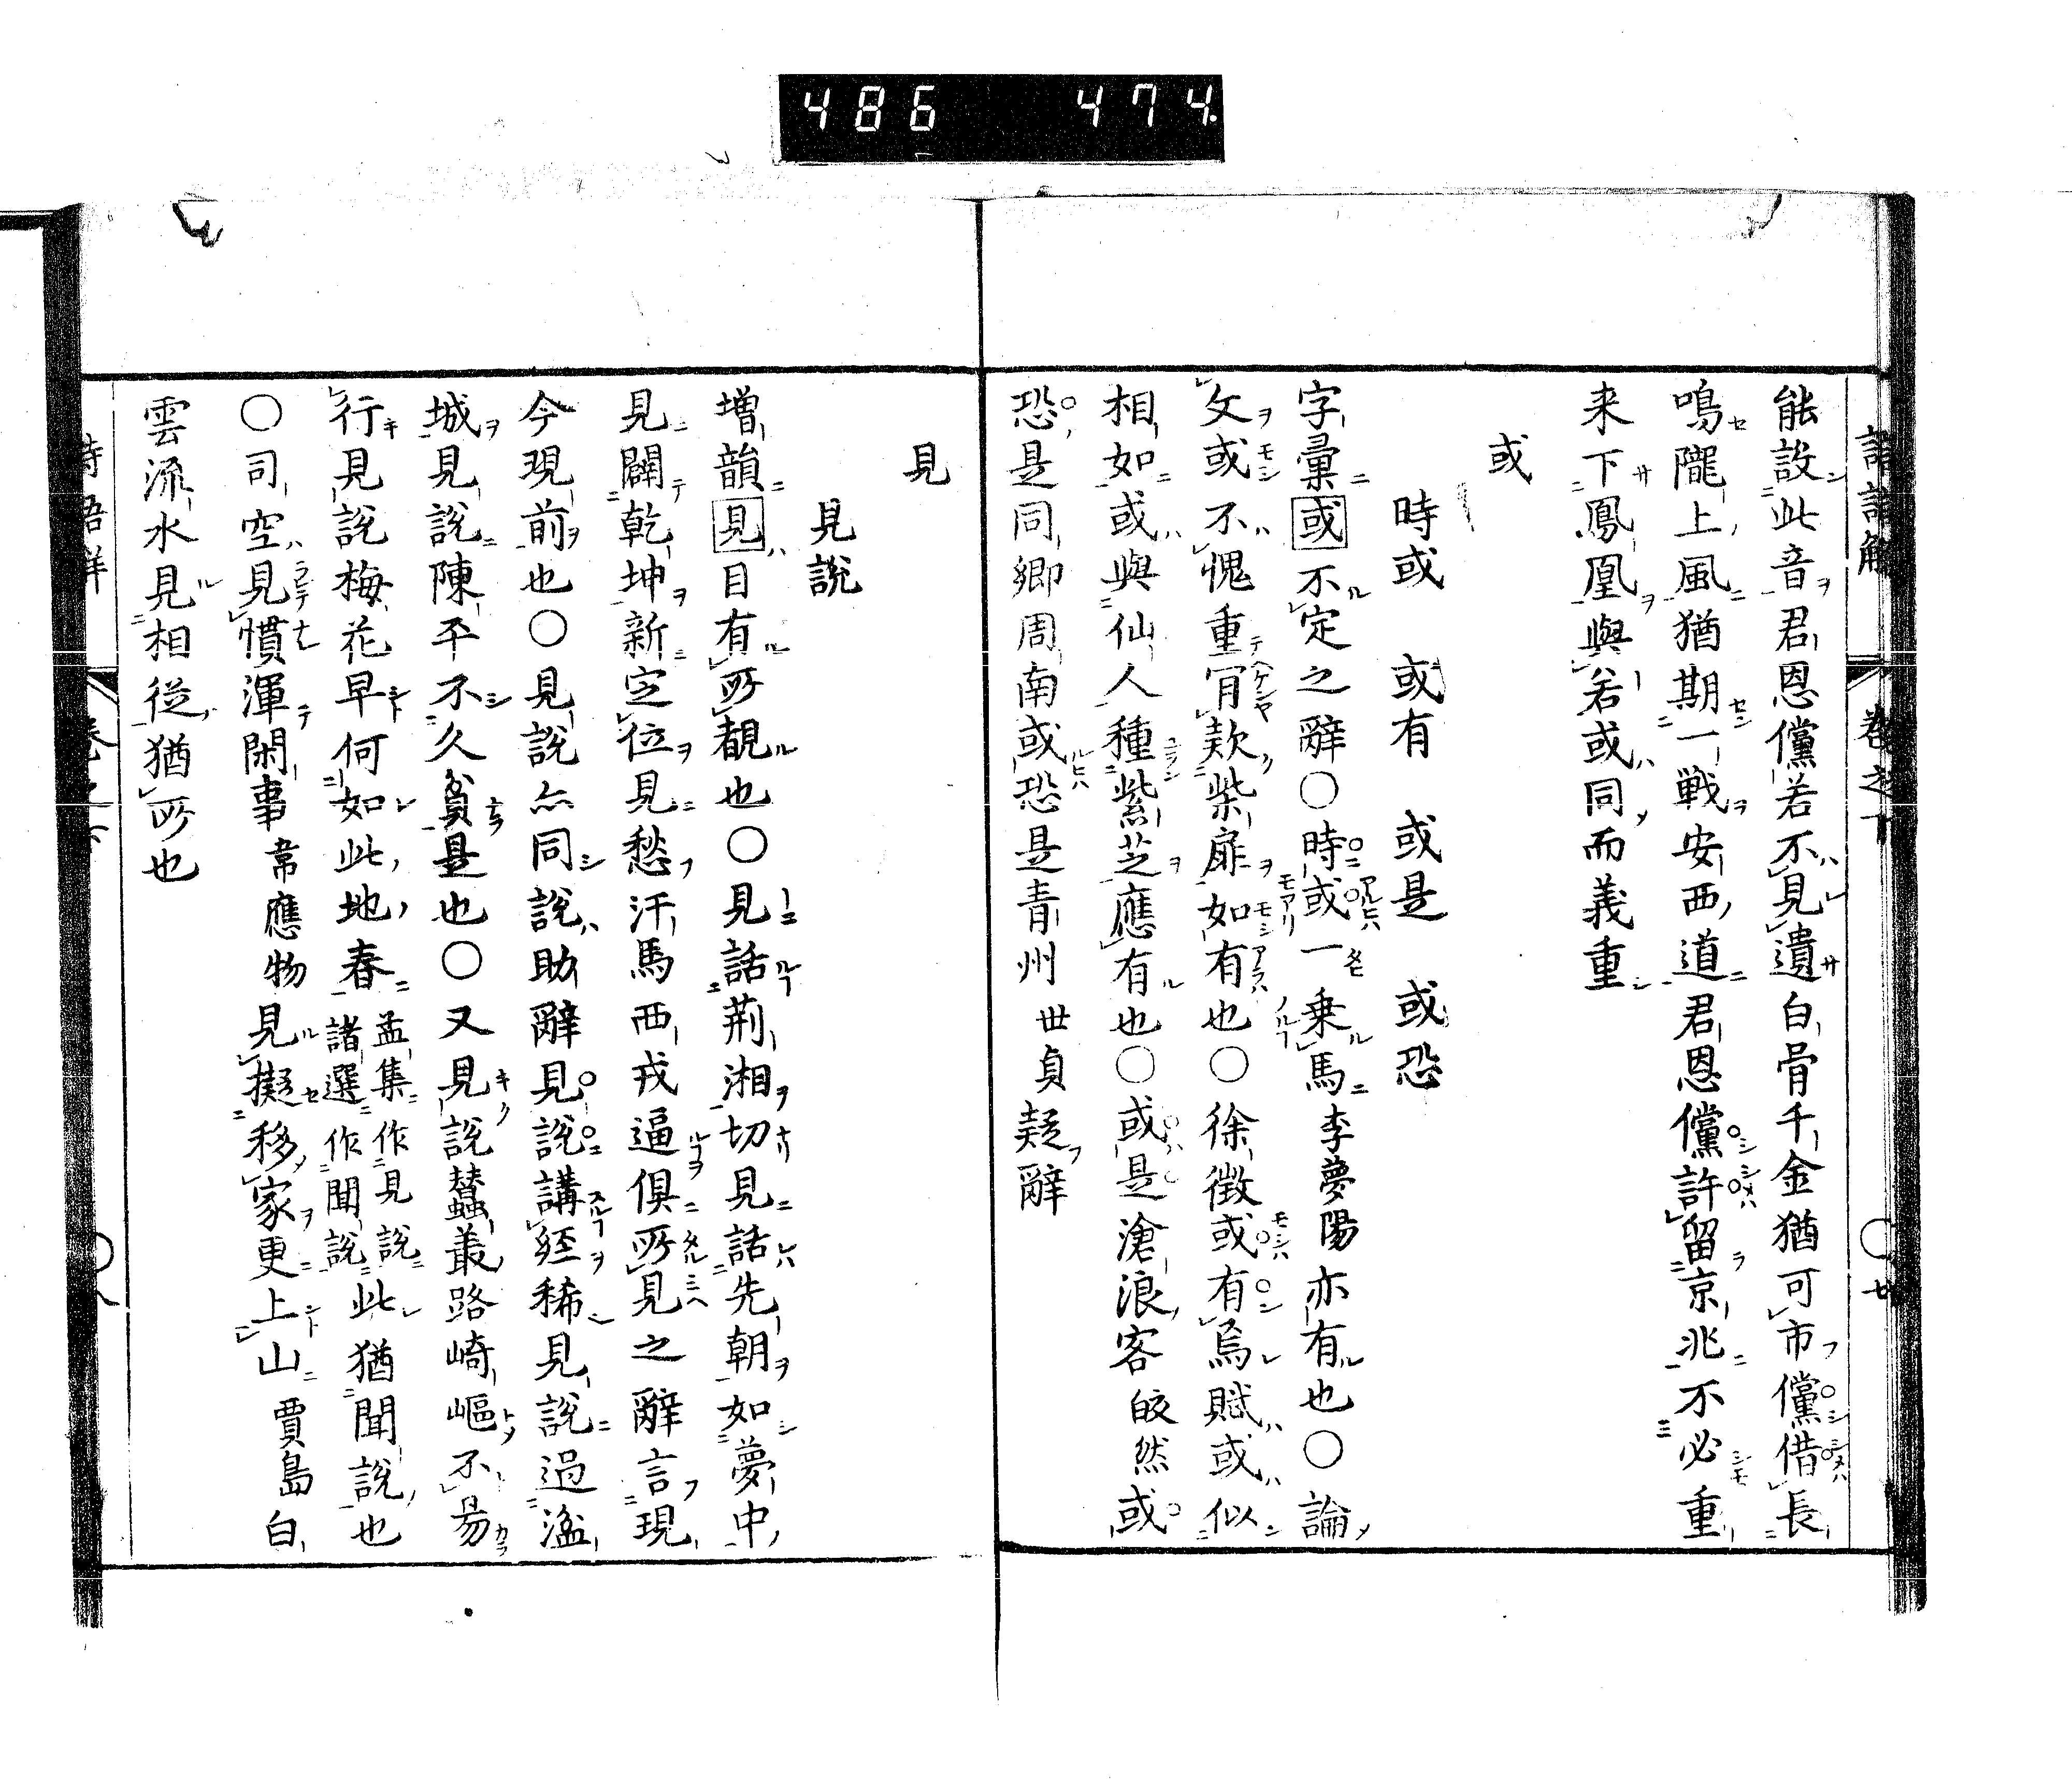 486 474.
能設此音君恩儻若不見遺白骨千金猶可市儻借長
鳴隴上風猶期一戦安西道君恩儻許留京兆不必重
来下鳳凰與若或同而義重
或
時或 或有 或是 或恐
字彙或不定之辭〇時或一乗馬李夢陽亦有也〇論
文或不愧重肎欵柴扉如有也〇徐徴或有烏賦或似
相如或與仙人種紫芝應有也〇或是滄浪客皎然或
恐是同郷周南或恐是青州世貞疑辭
見
見説
増韻見目有所覩也〇見話荊湘切見話先朝如夢中
見闢乾坤新定位見愁汗馬西戎逼倶所見之辭言現
今現前也〇見説亦同説助辭見説講経稀見説過湓
城見説陳平不久貧是也〇又見説蠶叢路崎嶇不易
行見説梅花早何如此地春孟集作見説諸選作聞説此猶聞説也
〇司空見慣渾閑事韋應物見擬移家更上山賈島白
雲流水見相從猶所也